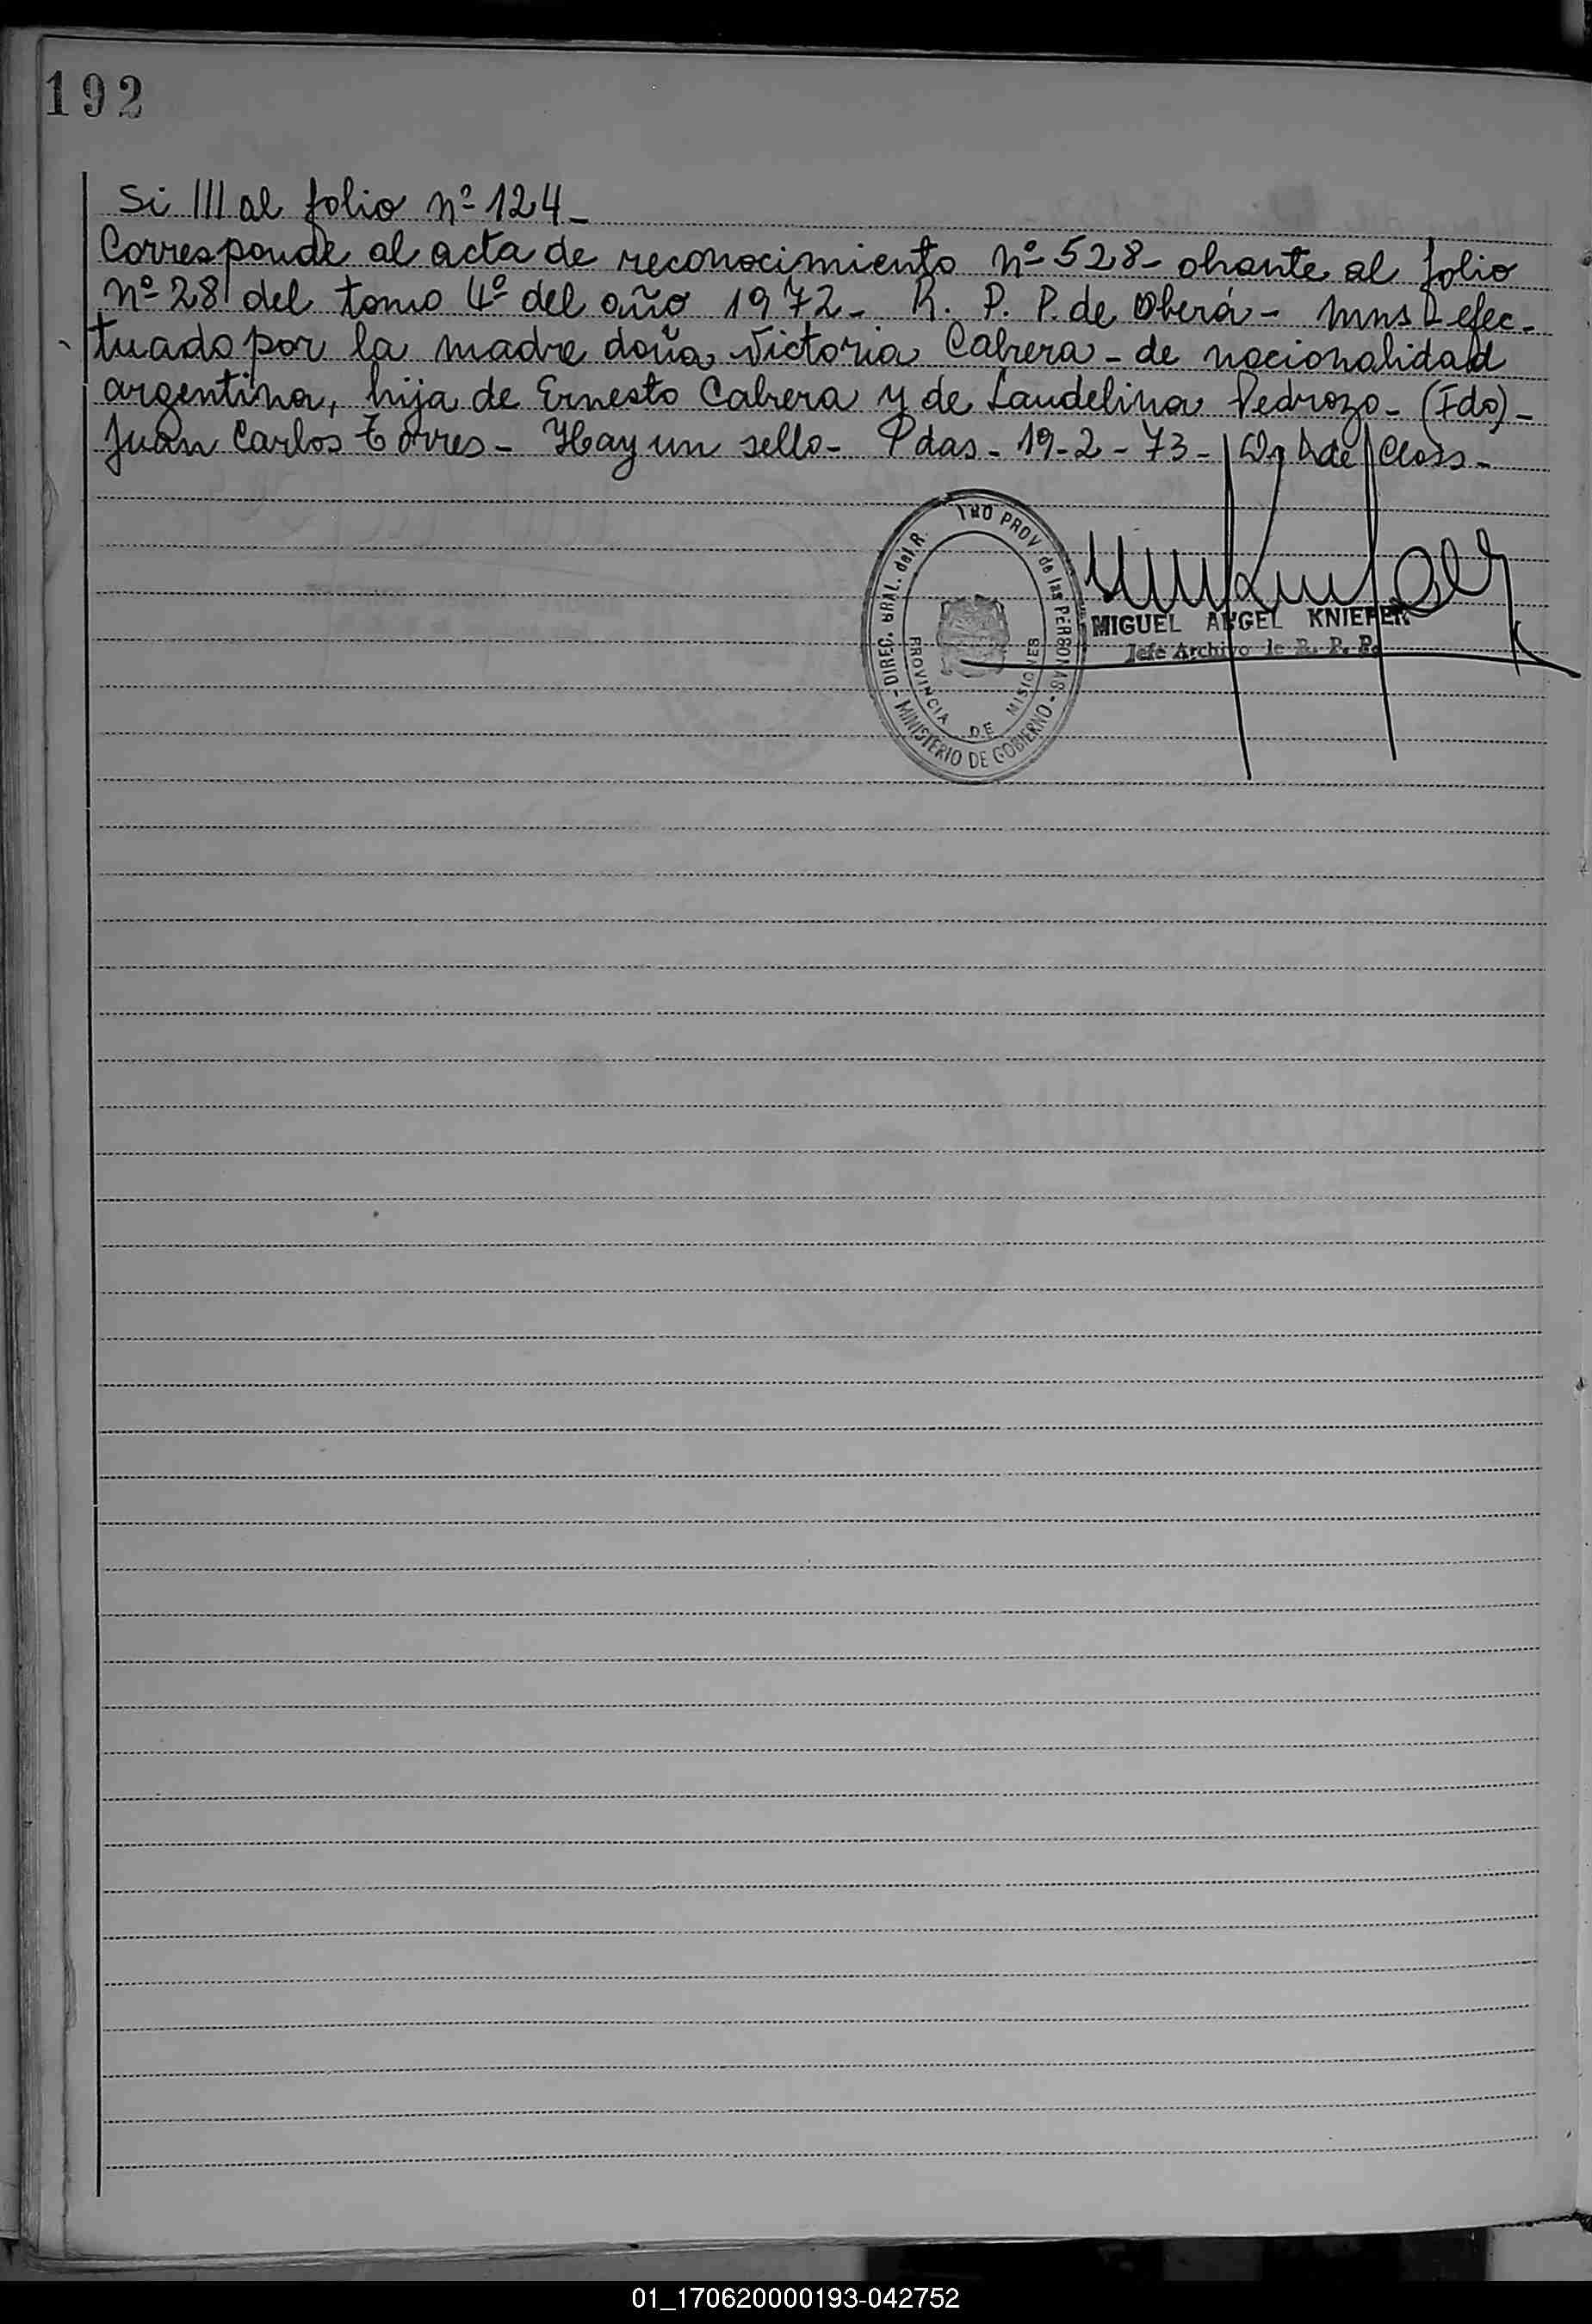 192
Si III al folio nº 124-
Corresponde al acta de reconocimiento nº 528- obante al folio
nº 28 del tomo 4º del año 1972- R. P. P. de Oberá- Mns - efec-
tuado por la madre doña Victoria Cabrera - de nacionalidad
argentina, hija de Ernesto Cabrera y de Laudelina Pedrozo- (Fdo)-
Juan Carlos Torres - Hay un sello- Pdas - 19-2-73-
DIREC. GRAL. del R. TRO PROV. de las PERSONAS - MINISTERIO DE GOBIERNO -
PROVINCIA DE MISIONES
MIGUEL ANGEL KNIEFER
Jefe Archivo de R. P. P.
01_170620000193-042752